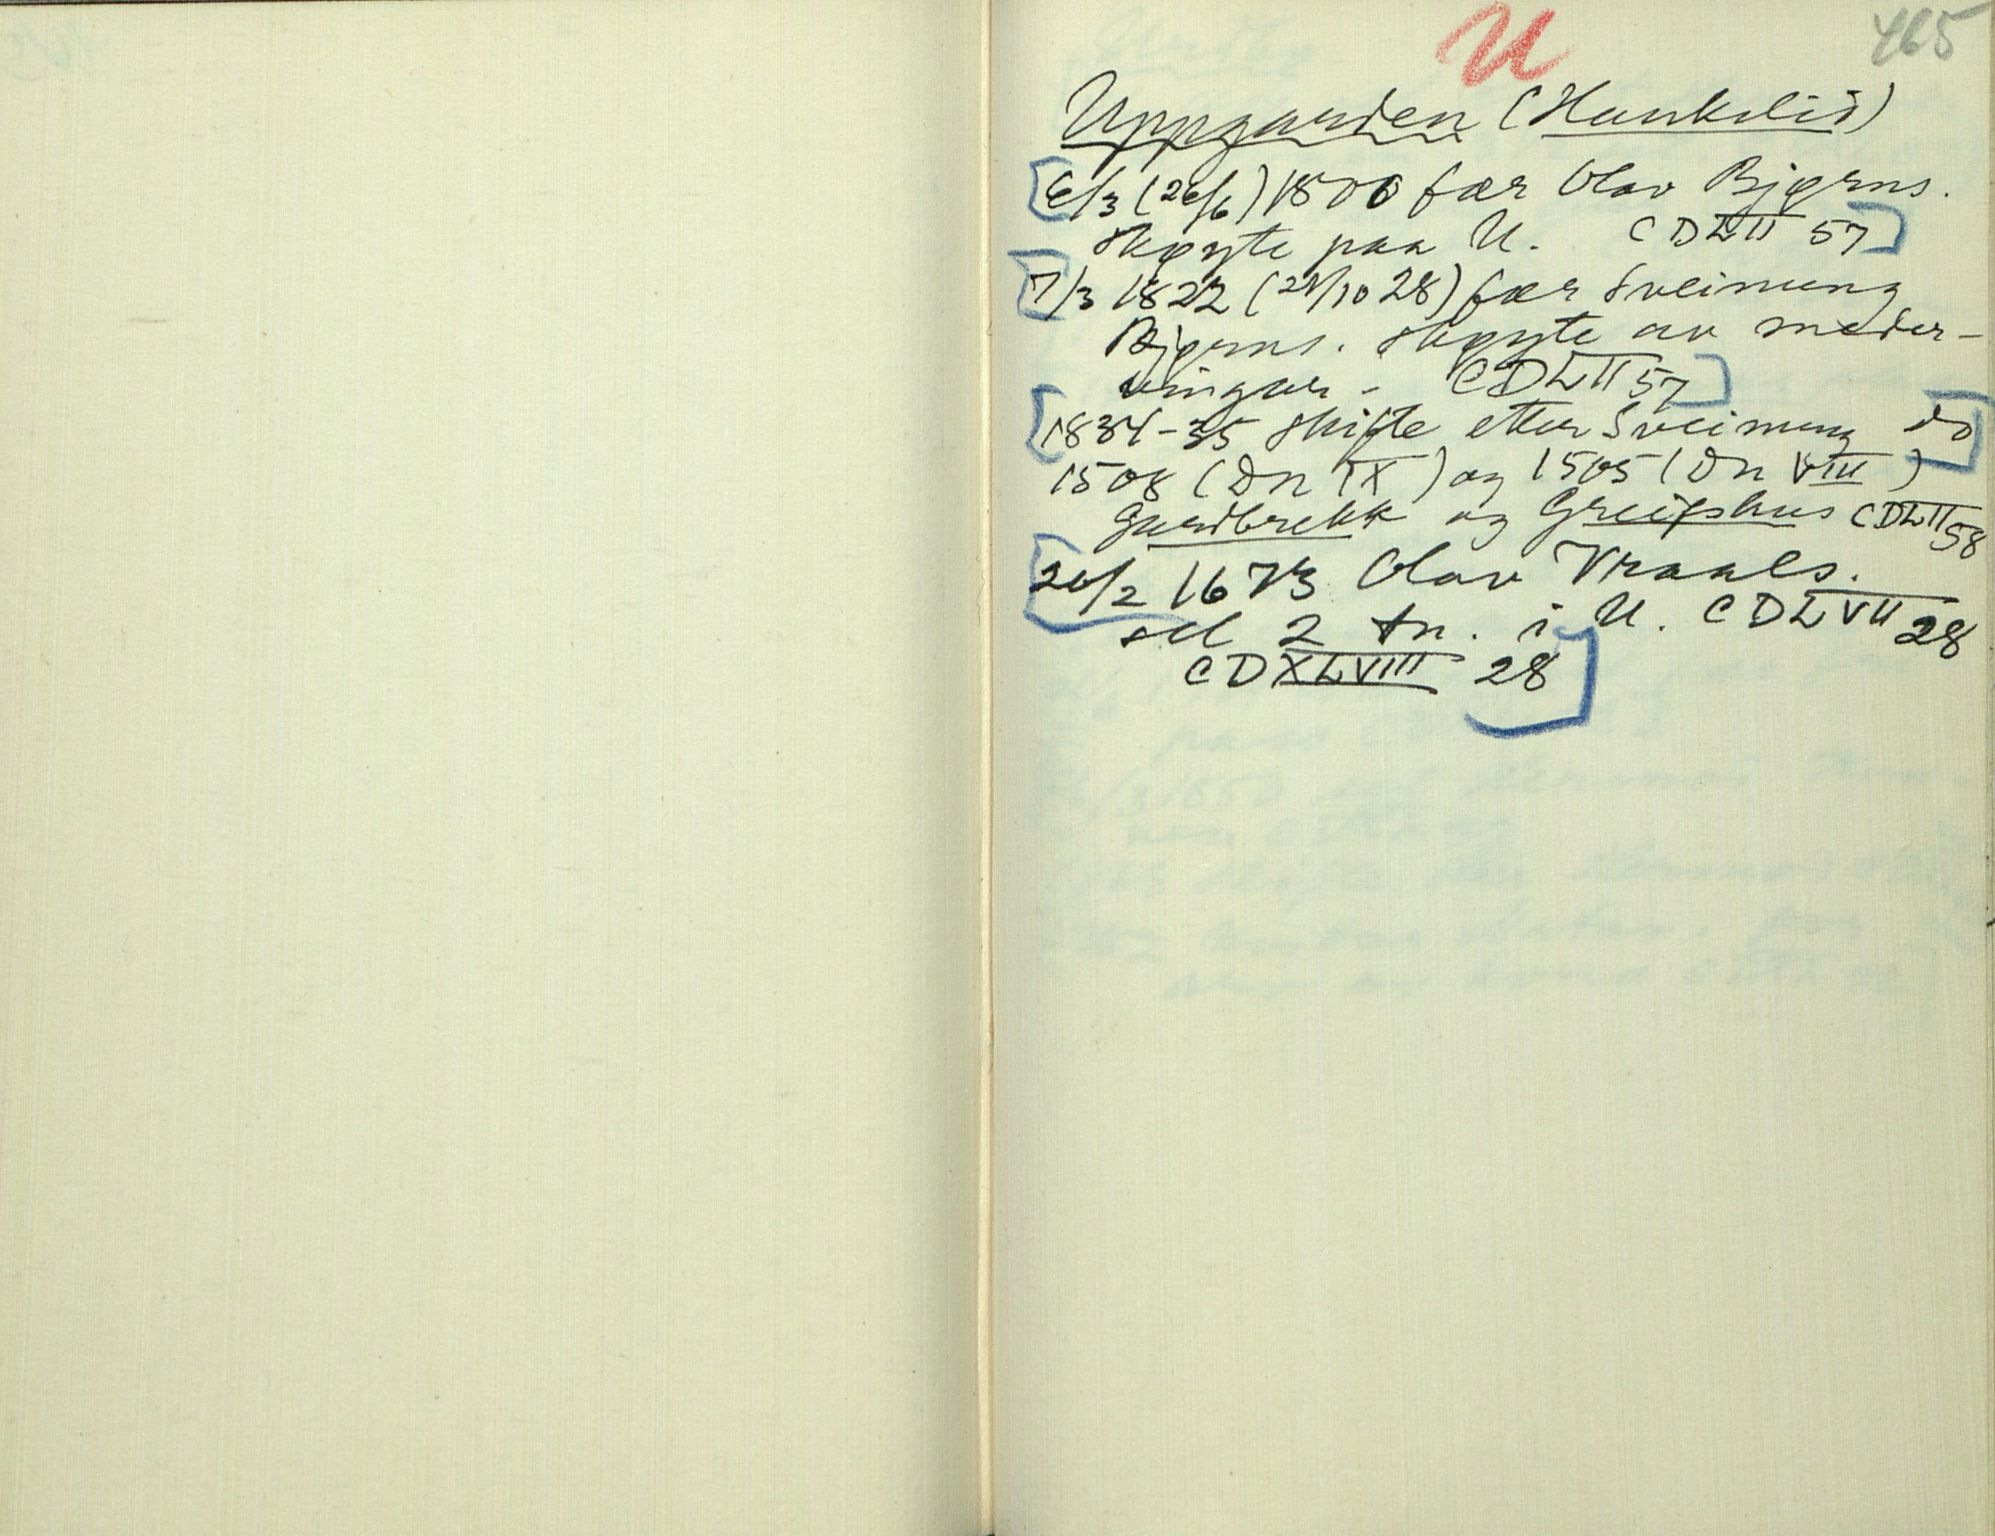 U
465
Uppgarden (Haukelid)
[6/3 (26/6) 1800 fær Olav Bjørns.
skøyte paa U. CDLII 57]
[7/3 1822 (28/10 28) fær Sveinung
Bjørns. skøyte av meder-
vingar - CDLII 57]
[1834-35 skifte etter Sveinung do]
1508 (DN IX) og 1505 (DN VIII)
Gardbrekk og Greipshus CDLII 58
[26/2 1673 Olav Vraals.
sel 2 tn. i U. CDLVII 28
CDXLVIII 28]